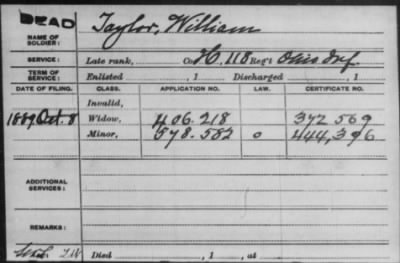 DEAD
NAME OF SOLDIER: Taylor, William
SERVICE: Late rank, Co. H, 118 Reg't Ohio Inf.
TERM OF SERVICE: Enlisted , 1 Discharged , 1
DATE OF FILING. CLASS. APPLICATION NO. LAW. CERTIFICATE NO.
Invalid,
1889 Oct. 8 Widow, 406.218 372 569
Minor, 578.582 o 444,396
ADDITIONAL SERVICES:
REMARKS:
Died , 1 , at